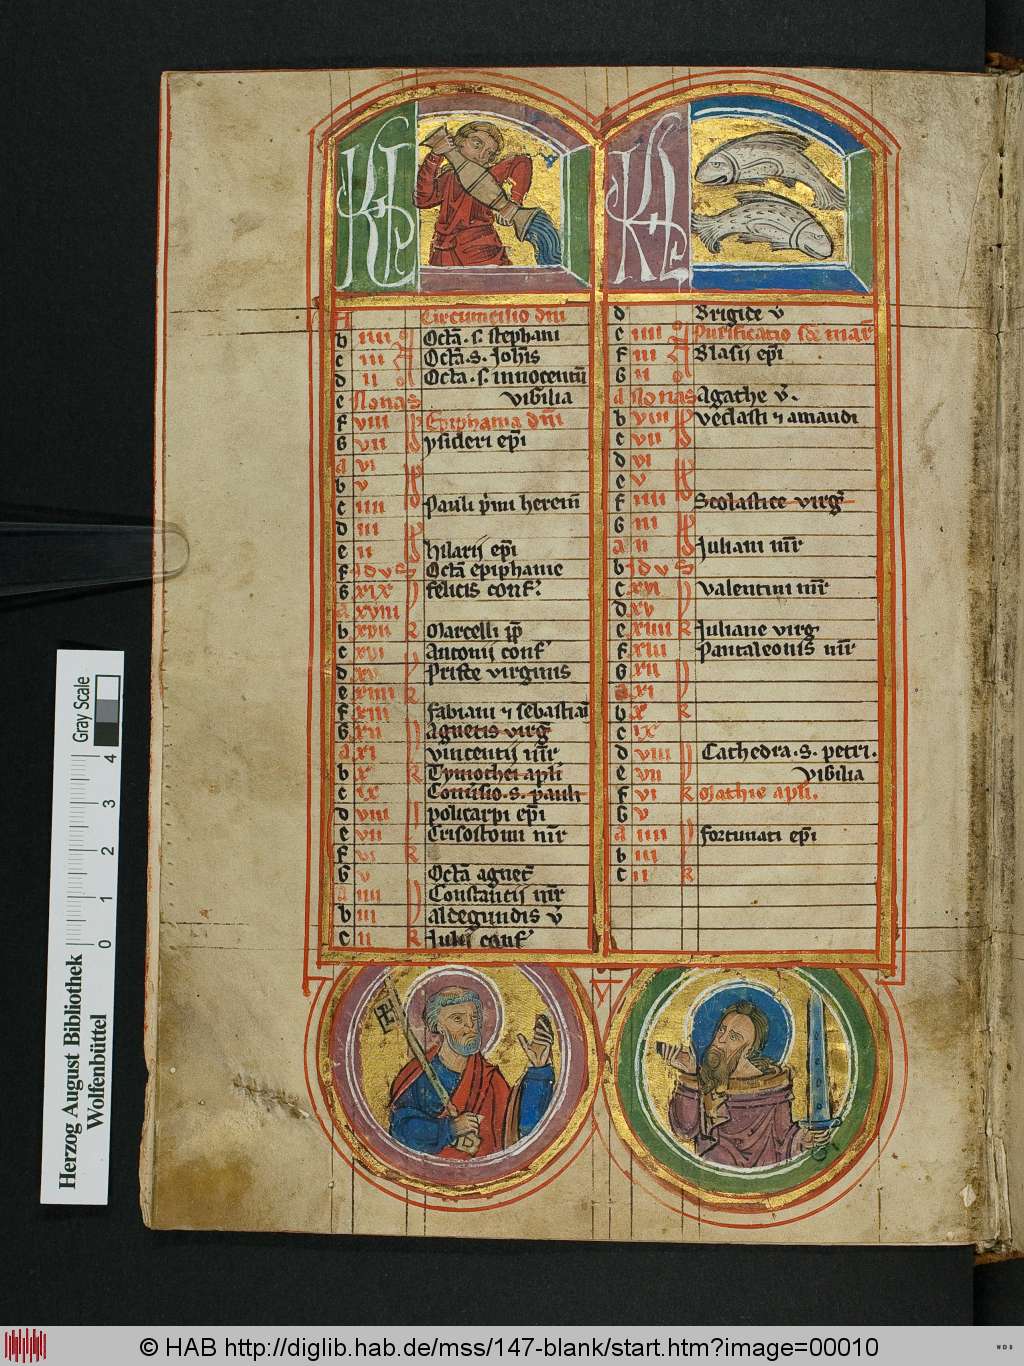 KL
A Circumcisio dni
b iiii Octa. s. stephani
c iii Octa. s. Johis
d ii Octa. s. innocentu
e Nonas vigilia
f viii Epiphania dni
G vii ysideri epi
a vi
b v
c iiii Pauli pimi herem
d iii
e ii hilarij epi
f Idus Octa epiphanie
G xix felicis conf.
a xviii
b xvii k Marcelli pp
c xvi Antonij conf
d xv prisce virginis
e xiiii k
f xiii fabiani ⁊ sebastiani
G xii Agnetis virg
a xi vincentij mr
b x k Tymothei apli
c ix Conusio. s. pauli
d viii policarpi epi
e vii Crisostomi mr
f vi k
G v Octa agnet
a iiii Constantij mr
b iii aldegundis v
c ii k Julij conf
KL
d Brigide v
e iiii Purificatio sce mar
f iii Blasij epi
G ii
a Nonas Agathe v.
b viii vedasti ⁊ amandi
c vii
d vi
e v
f iiii Scolastice virg
G iii
a ii Juliani mr
b Idus
c xvi valentini mr
d xv
e xiiii k Juliane virg
f xiii Pantaleonis mr
G xii
a xi
b x k
c ix
d viii Cathedra. s. petri.
e vii vigilia
f vi k Mathie apli.
G v
a iiii fortunati epi
b iii
c ii k
Gray Scale
0 1 2 3 4
Herzog August Bibliothek
Wolfenbüttel
© HAB http://diglib.hab.de/mss/147-blank/start.htm?image=00010